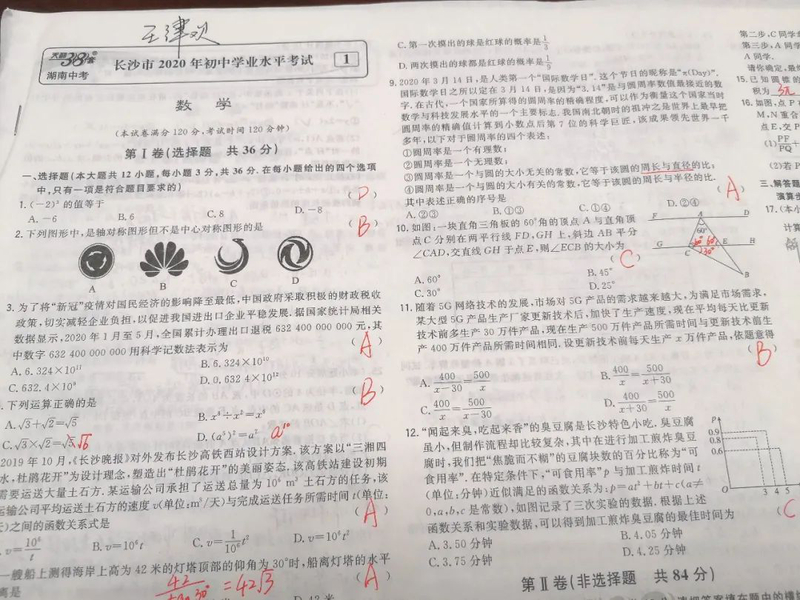 王津欢
天籁38套
湖南中考
长沙市2020年初中学业水平考试
1
数 学
(本试卷满分120分,考试时间120分钟)
第Ⅰ卷(选择题 共36分)
一、选择题(本大题共12小题,每小题3分,共36分.在每小题给出的四个选项
中,只有一项是符合题目要求的)
1.(-2)³的值等于 (D)
A.-6 B.6 C.8 D.-8
2.下列图形中,是轴对称图形但不是中心对称图形的是 (B)
A B C D
3.为了将"新冠"疫情对国民经济的影响降至最低,中国政府采取积极的财政税收
政策,切实减轻企业负担,以促进我国进出口企业平稳发展.据国家统计局相关
数据显示,2020年1月至5月,全国累计办理出口退税632 400 000 000元,其
中数字632 400 000 000用科学记数法表示为 (A)
A.6.324×10¹¹ B.6.324×10¹⁰
C.632.4×10⁹ D.0.632 4×10¹²
下列运算正确的是 (B)
A.√3+√2=√5 B.x⁸÷x²=x⁶
C.√3×√2=√5 √6 D.(a⁵)²=a⁷ a¹⁰
2019年10月,《长沙晚报》对外发布长沙高铁西站设计方案.该方案以"三湘四
水,杜鹃花开"为设计理念,塑造出"杜鹃花开"的美丽姿态.该高铁站建设初期
需要运送大量土石方.某运输公司承担了运送总量为10⁶ m³土石方的任务,该
运输公司平均运送土石方的速度v(单位:m³/天)与完成运送任务所需时间t(单位:
天)之间的函数关系式是 (A)
v=10⁶/t B.v=10⁶t C.v=1/10⁶ t² D.v=10⁶t²
一艘船上测得海岸上高为42米的灯塔顶部的仰角为30°时,船离灯塔的水平
离是 (A)
42/tan30°=42√3
D.42米
C.第一次摸出的球是红球的概率是1/3
D.两次摸出的球都是红球的概率是1/9
9.2020年3月14日,是人类第一个"国际数学日".这个节日的昵称是"π(Day)".
国际数学日之所以定在3月14日,是因为"3.14"是与圆周率数值最接近的数
字.在古代,一个国家所算得的圆周率的精确程度,可以作为衡量这个国家当时
数学与科技发展水平的一个主要标志.我国南北朝时的祖冲之是世界上最早把
圆周率的精确值计算到小数点后第7位的科学巨匠,该成果领先世界一千
多年,以下对于圆周率的四个表述:
①圆周率是一个有理数;
②圆周率是一个无理数;
③圆周率是一个与圆的大小无关的常数,它等于该圆的周长与直径的比;
④圆周率是一个与圆的大小有关的常数,它等于该圆的周长与半径的比.
其中表述正确的序号是 (A)
A.②③ B.①③ C.①④ D.②④
10.如图:一块直角三角板的60°角的顶点A与直角顶
点C分别在两平行线FD,GH上,斜边AB平分
∠CAD,交直线GH于点E,则∠ECB的大小为
(C)
A.60° B.45°
C.30° D.25°
F A D
60°
G C E H
30°
B
11.随着5G网络技术的发展,市场对5G产品的需求越来越大,为满足市场需求,
某大型5G产品生产厂家更新技术后,加快了生产速度,现在平均每天比更新
技术前多生产30万件产品,现在生产500万件产品所需时间与更新技术前生
产400万件产品所需时间相同.设更新技术前每天生产x万件产品,依题意得
(B)
A.400/(x-30)=500/x B.400/x=500/(x+30)
C.400/x=500/(x-30) D.400/(x+30)=500/x
12."闻起来臭,吃起来香"的臭豆腐是长沙特色小吃,臭豆腐
虽小,但制作流程却比较复杂,其中在进行加工煎炸臭豆
腐时,我们把"焦脆而不糊"的豆腐块数的百分比称为"可
食用率".在特定条件下,"可食用率"p与加工煎炸时间t
(单位:分钟)近似满足的函数关系为:p=at²+bt+c(a≠
0,a,b,c是常数),如图记录了三次实验的数据.根据上述
函数关系和实验数据,可以得到加工煎炸臭豆腐的最佳时间为
(C
A.3.50分钟 B.4.05分钟
C.3.75分钟 D.4.25分钟
p
0.9
0.8
0.6
O 3 4 5
第Ⅱ卷(非选择题 共84分)
第二步,C同学
第三步,A同学
A同学.
请你确定,最终
15.已知圆锥的
积为 3π
16.如图,点P
M,N重合
点E,交P
(1)PF/PQ+
(2)若P
三、解答题
演算步
17.(本小
计算